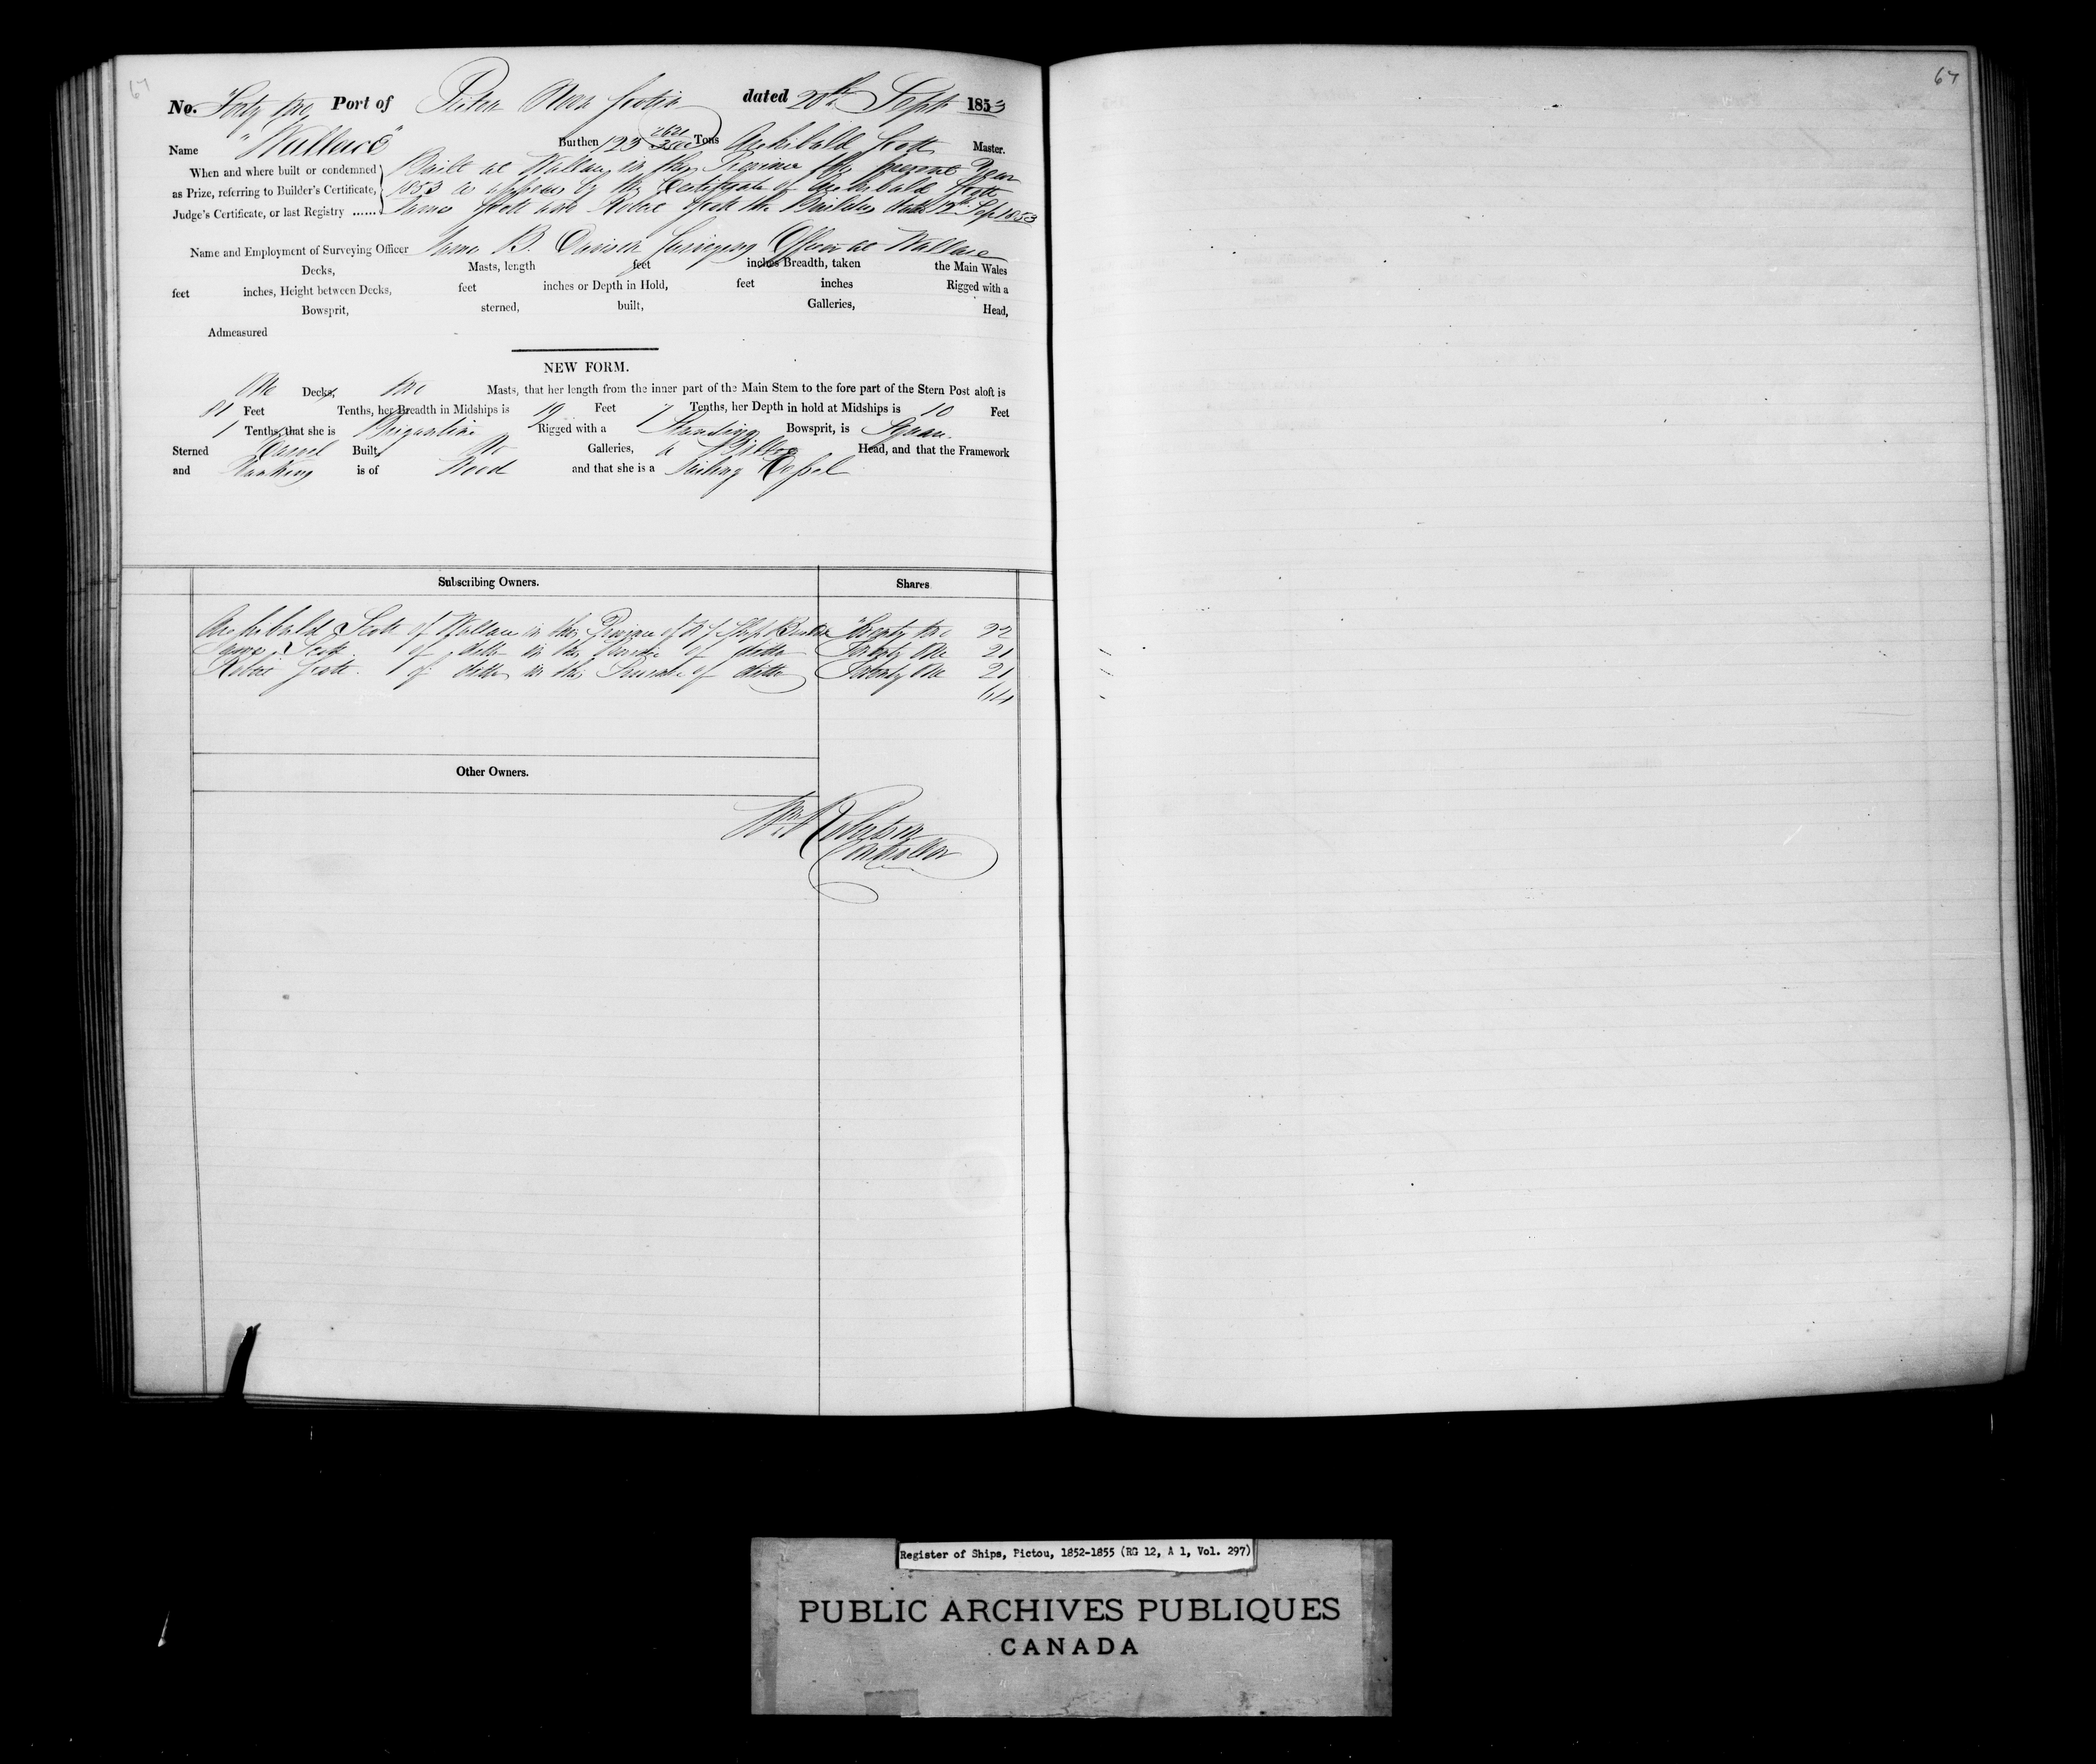 67
No. Forty two Port of Pictou Nova Scotia dated 20th Sept 1853
Name "Wallace" Burthen 123 2621/3500 Tons Archibald Scott Master.
When and where built or condemned Built at Wallace in this Province the present Year
as Prize, referring to Builder's Certificate, 1853 as appears by the Certificate of Archibald Scott
Judge's Certificate, or last Registry ...... James Scott and Robert Scott the Builders dated 12th Sep 1853
Name and Employment of Surveying Officer James B. Davison Surveying Officer at Wallace
Decks, Masts, length feet inches Breadth, taken the Main Wales
feet inches, Height between Decks, feet inches or Depth in Hold, feet inches Rigged with a
Bowsprit, sterned, built, Galleries, Head,
Admeasured
NEW FORM.
One Decks, two Masts, that her length from the inner part of the Main Stem to the fore part of the Stern Post aloft is
81 Feet Tenths, her Breadth in Midships is 19 Feet 7 Tenths, her Depth in hold at Midships is 10 Feet
1 Tenths, that she is Brigantine Rigged with a Standing Bowsprit, is Square
Sterned Carvel Built, No Galleries, a Billet Head, and that the Framework
and Planking is of Wood and that she is a Sailing Vessel
Subscribing Owners. Shares
Archibald Scott of Wallace in this Province of N S Ship Builder Twenty two 22
James Scott of ditto in this Province of ditto Twenty One 21
Robert Scott of ditto in this Province of ditto Twenty One 21
64
Other Owners.
Wm Robertson
Controller
67
Register of Ships, Pictou, 1852-1855 (RG 12, A 1, Vol. 297)
PUBLIC ARCHIVES PUBLIQUES
CANADA